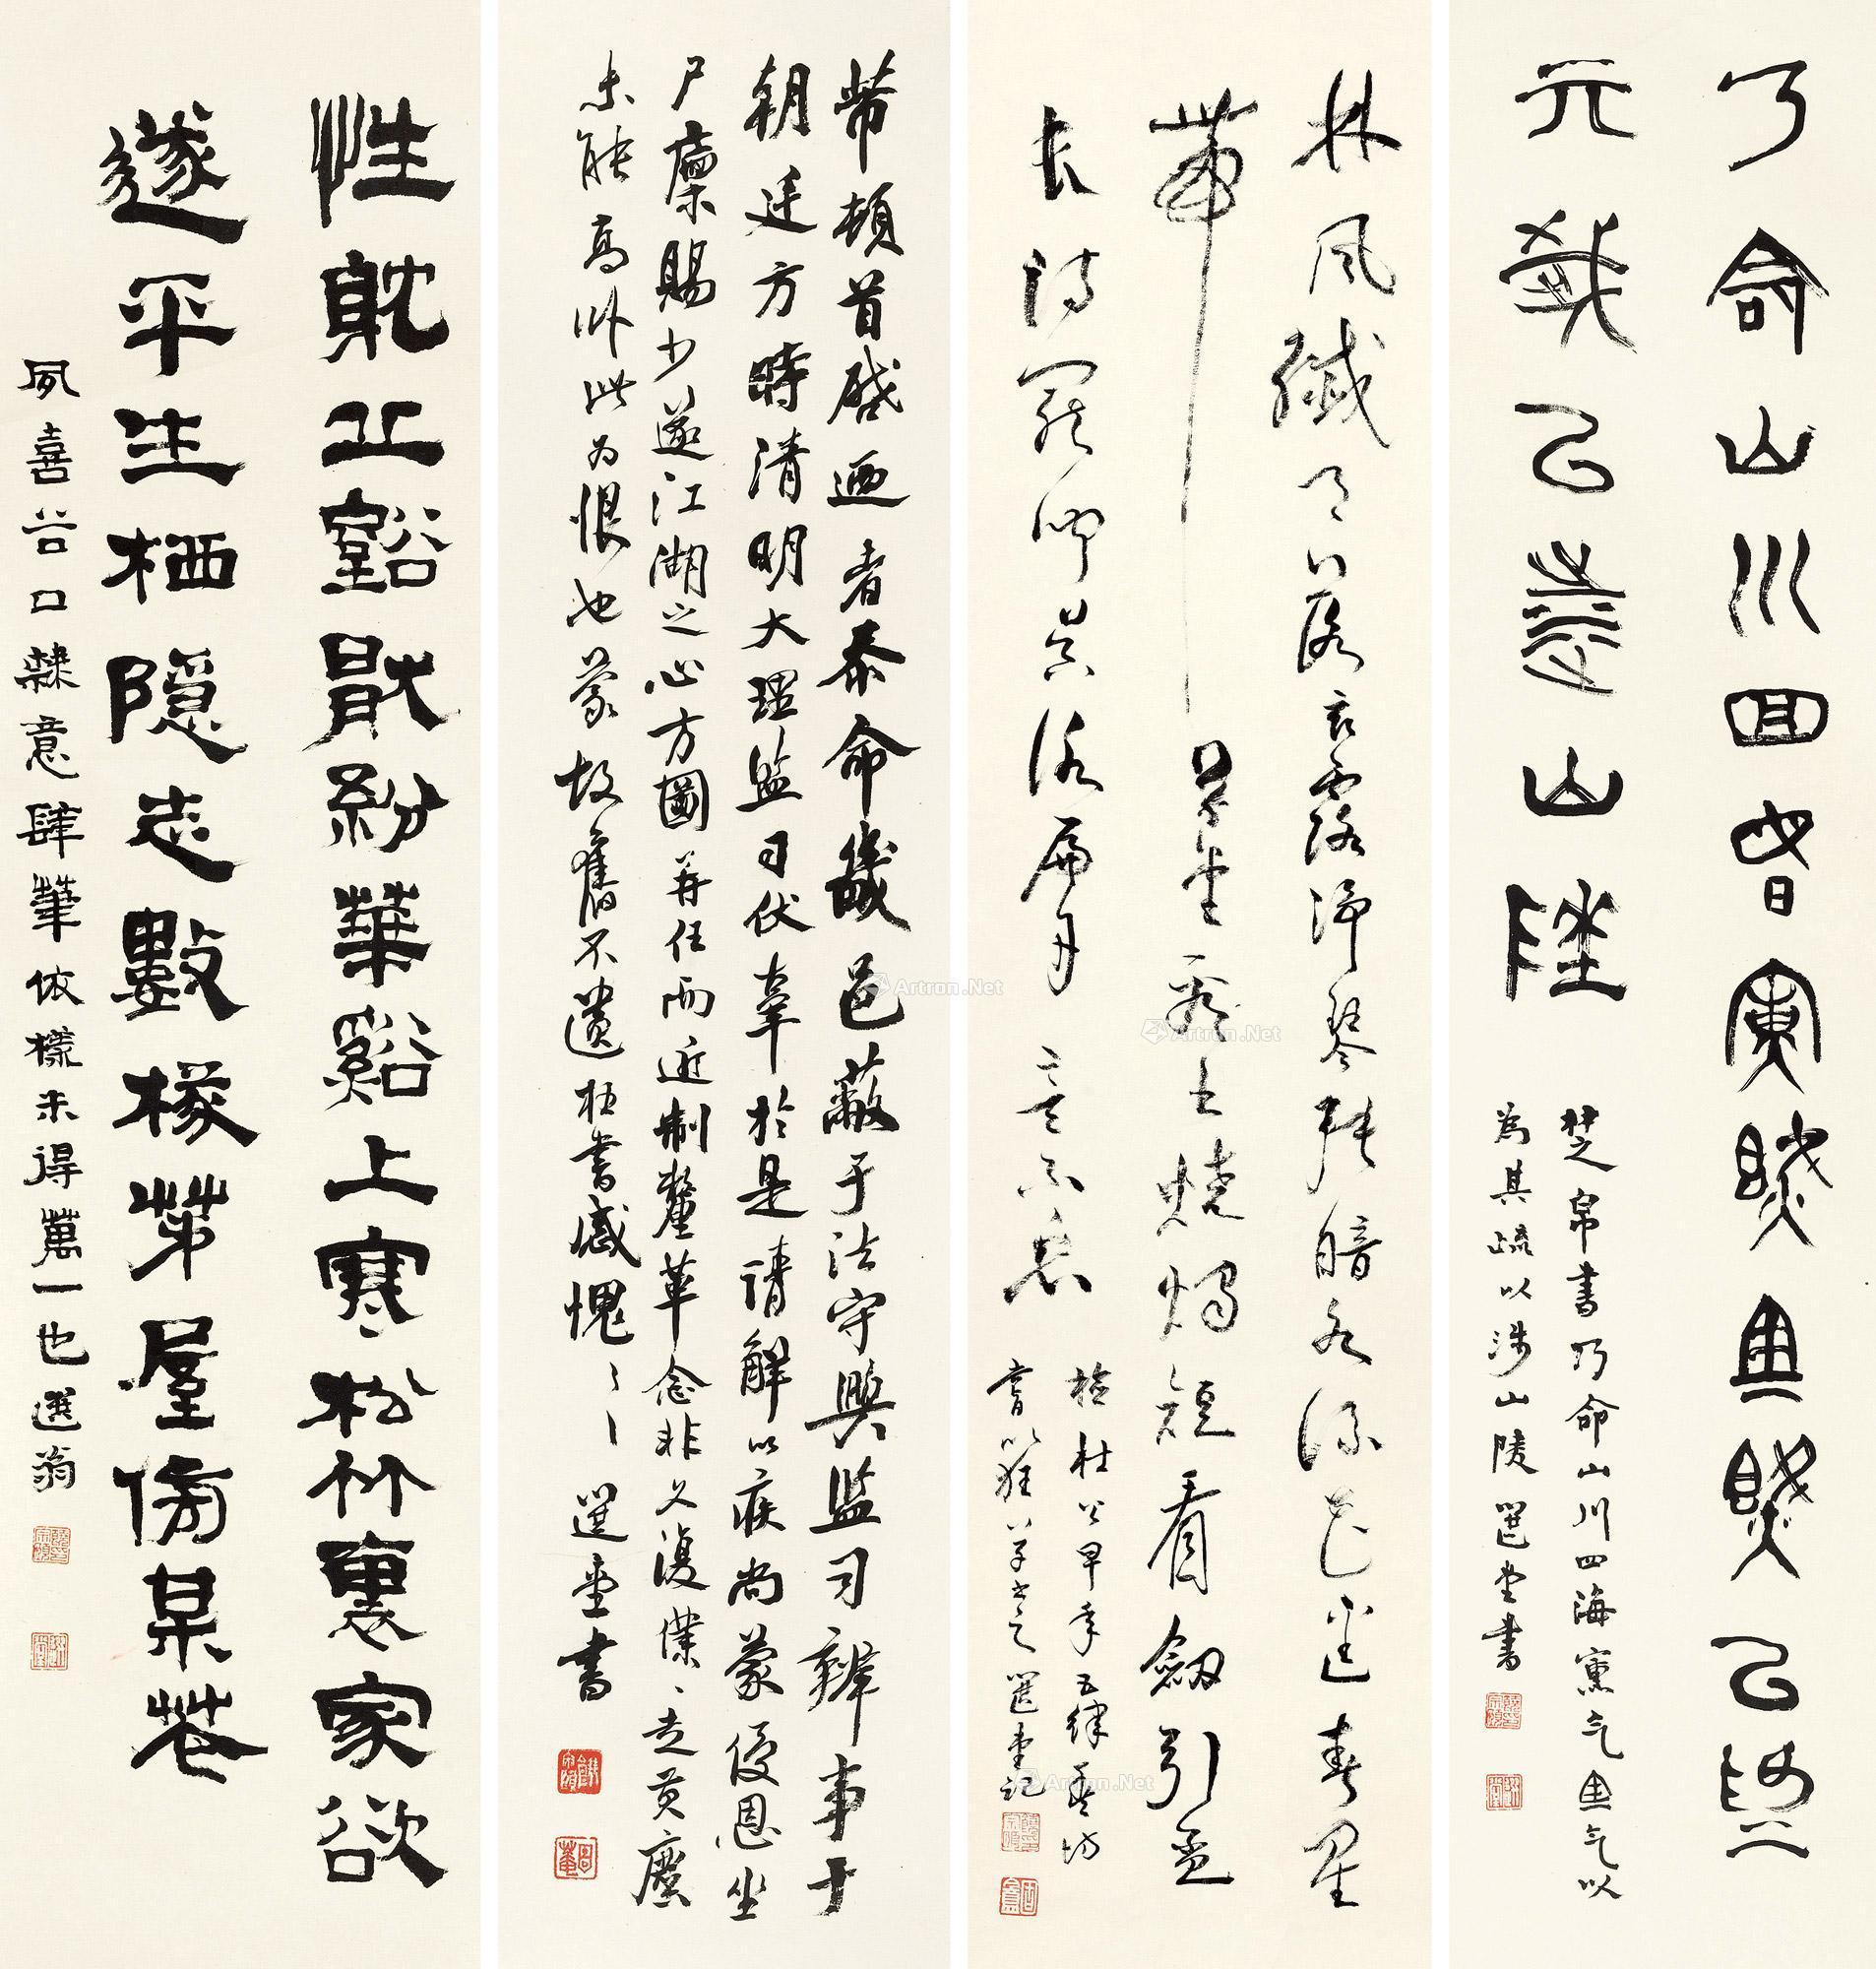 乃命山川四晦寮熋與熋以為
亓斌以涉山陵
楚帛書乃命山川四海寮气䖒气以
為其疏以涉山陵 選堂書
林風纖月落衣露淨琴張暗水流花徑春星
帶草堂看士燒燭短看劍引盃
長詩罷聞吳詠扁舟意不忘
檢杜公早年五律
書以狂草書之選堂記
芾頓首啓迺者泰命畿邑蔽于法守與監司辨事于
朝廷方時清明大理監司伏辜於是請解以疾尚蒙優恩坐
尸廩賜少遂江湖之心方圖再任而近制釐革念非久復僕僕走黃塵
未能高臥此為恨也蒙故舊不遺枉書感愧愧 選堂書
性耽丘壑厭紛華谿上寒松竹裏家欲
遂平生栖隱志數椽茅屋傍某花
夙喜谷口隸意肆筆依樣未得萬一也選翁
Artron.Net
Artron.Net
Artron.Net